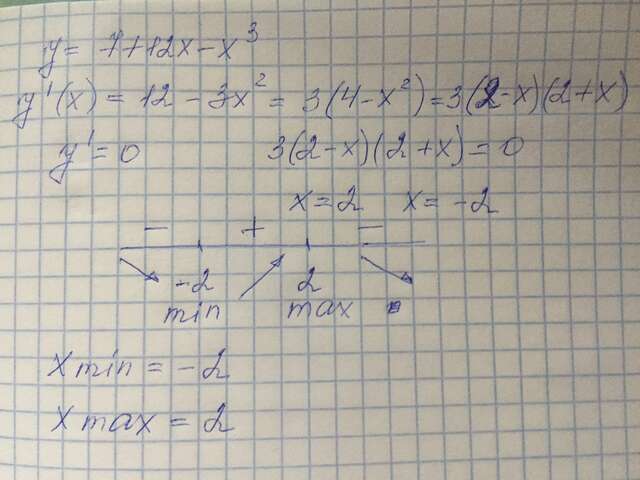 y = 7+12x-x³
y'(x) = 12 - 3x² = 3(4-x²)=3(2-x)(2+x)
y'=0 3(2-x)(2+x)=0
x=2 x=-2
- + -
-2 2
min max
x min = -2
x max = 2